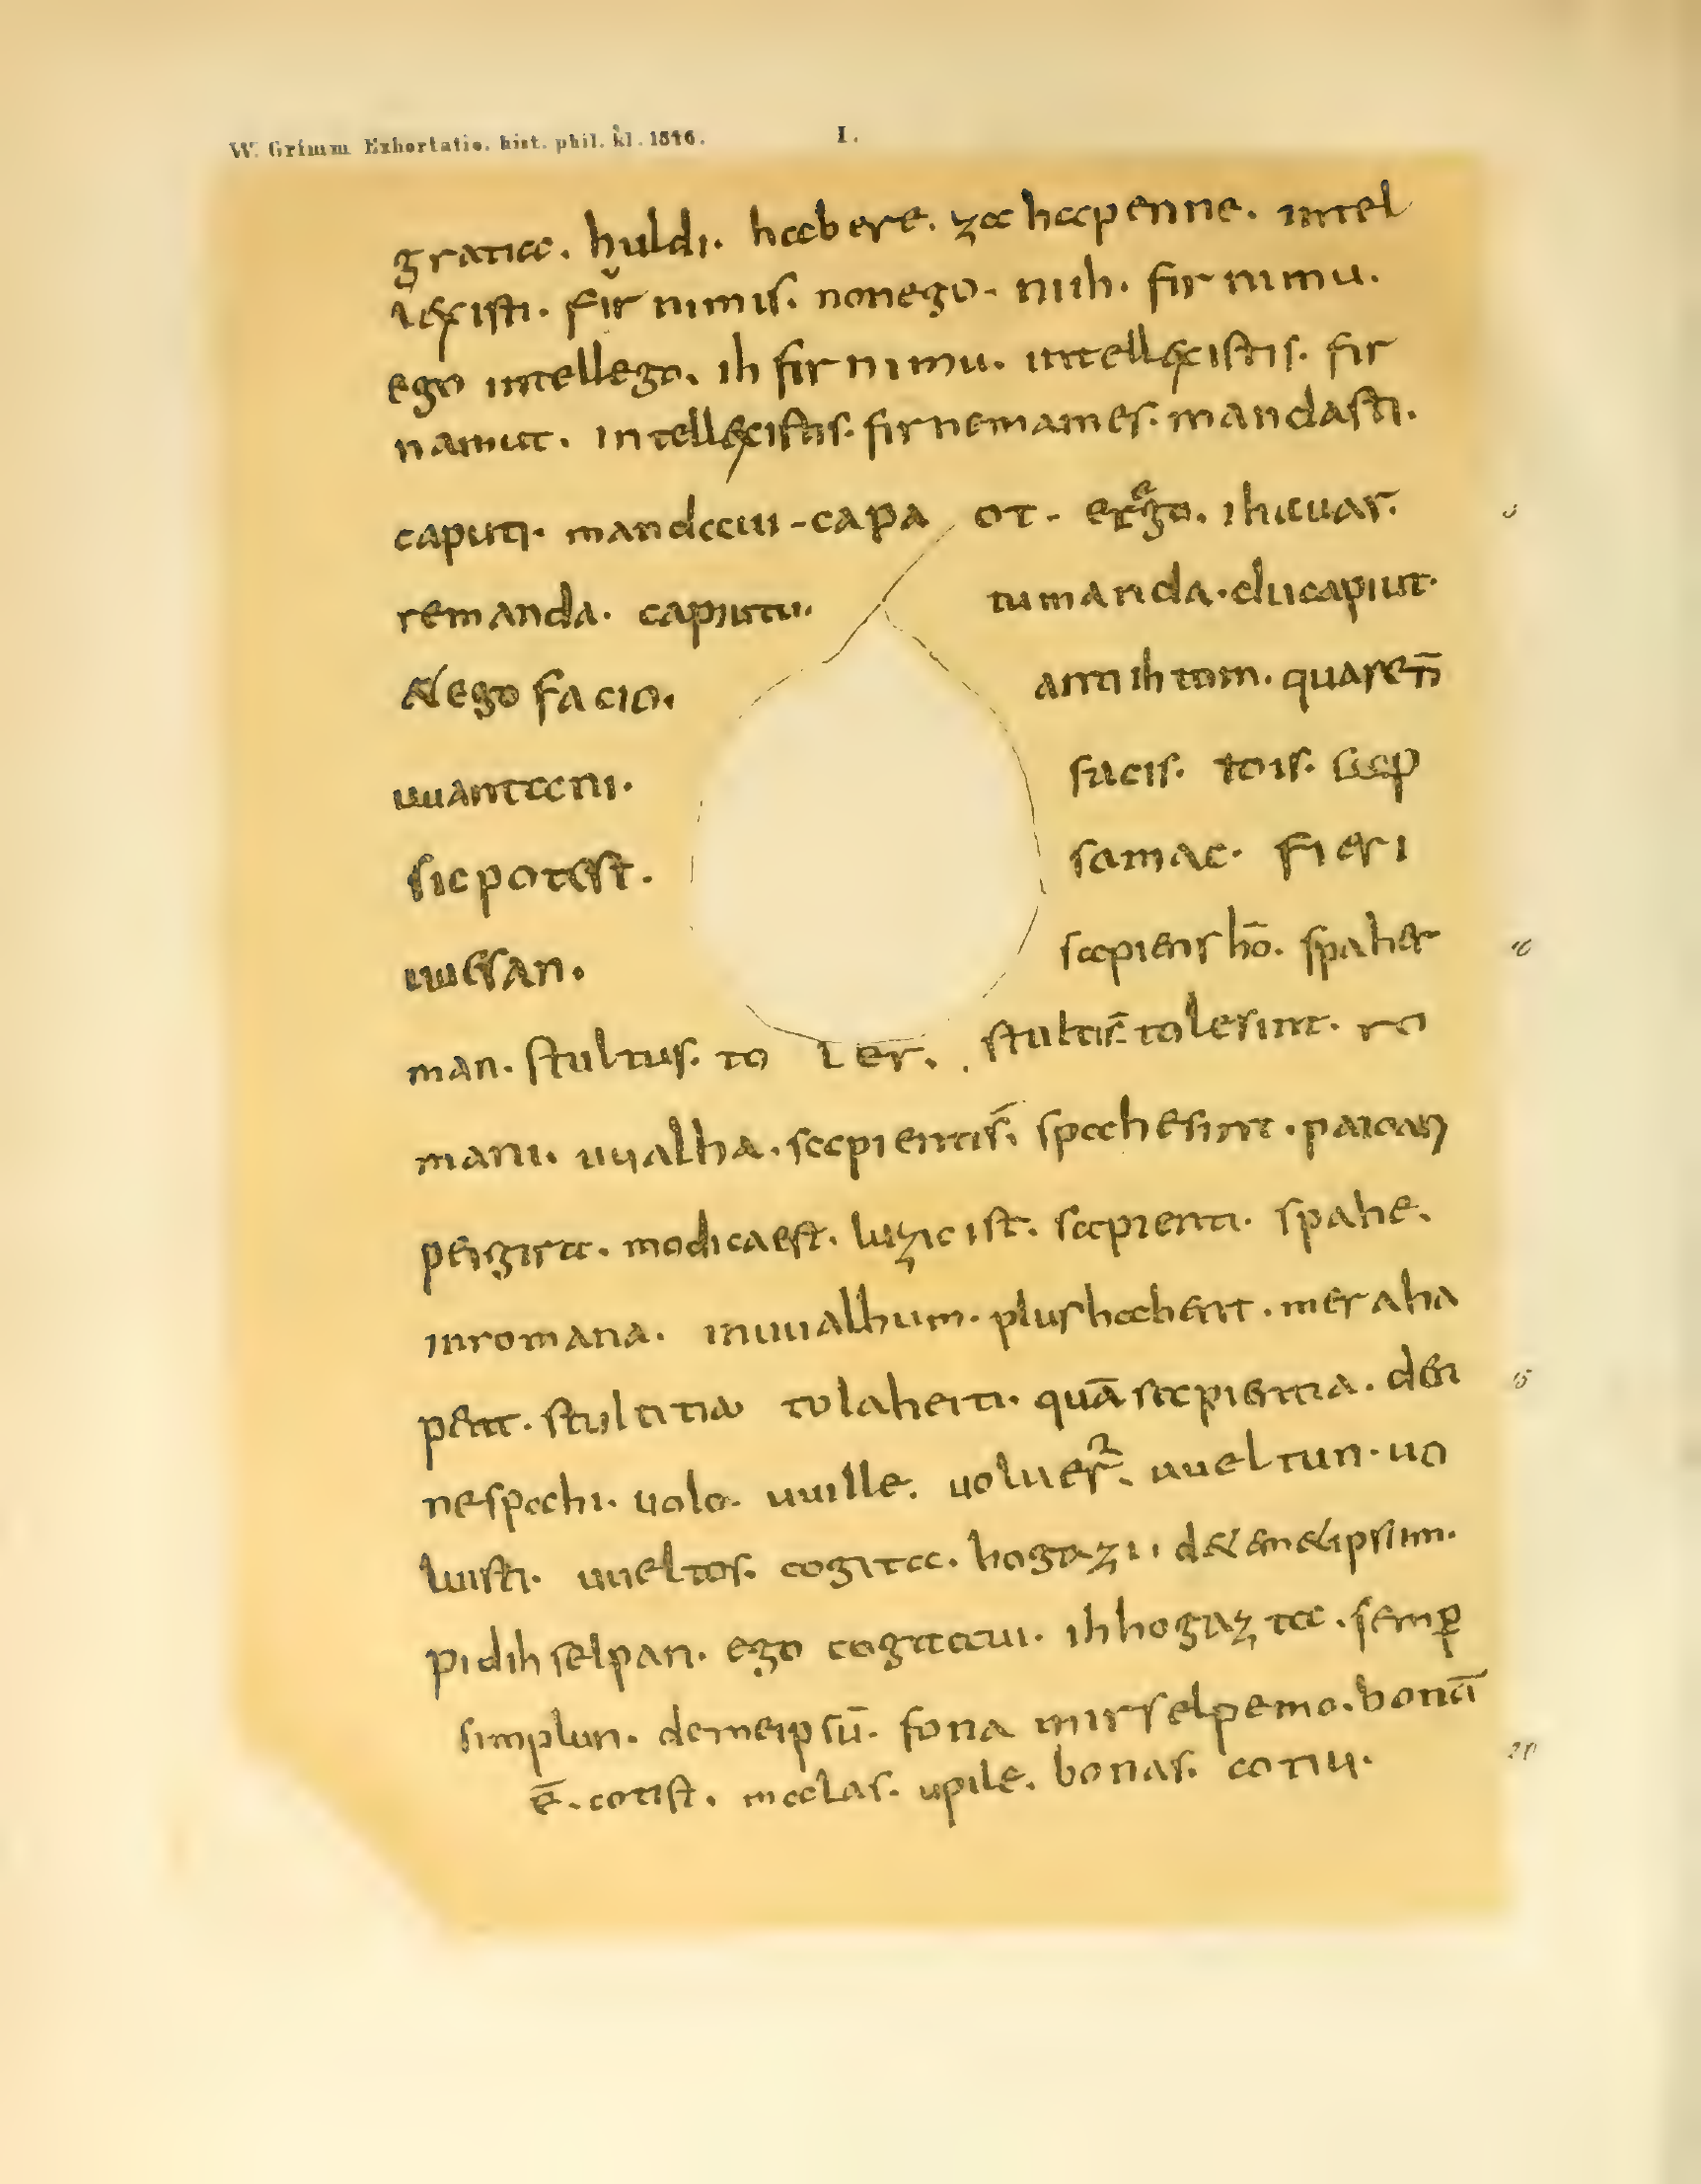 W. Grimm Exhortatio. hist. phil. kl. 1846. I.
gratia. huldi. habere. za hapenne. intel
lexisti. fir nimis. non ego. niih. fir nimu.
ego intellego. ih fir nimu. intellexistis. fir
namut. intellexistis. fir nemames. mandasti.
caputi. mandaui - capa ot. et ego. ih auar.
remanda. capiutu. tu manda. du capiut.
& ego facio. anti ih tom. quare n̄
uuanta ni. facis. tois. sep
sic potest. sama c. fieri
uuesan. sapiens hō. spaher
man. stultus. to ler. stulti s̄ tole sint. ro
mani. uualha. sapienti s̄. spahe sint. paioari
peigira. modica est. luzic ist. sapienti. spahe.
in romana. in uualhum. plus habent. mera ha
pent. stultitia tolaheiti. quā sapientia. den
ne spahi. uolo. uuille. uoluer̃. uueltun. uo
luisti. uueltos. cogita. hogazi. de temetipsum.
pi dih selpan. ego cogitaui. ih hogaz ta. semꝑ
simplun. de me ipsū. fona mir selpemo. bonā
ē. cot ist. malas. upile. bonas. cotiu.
5
10
15
20